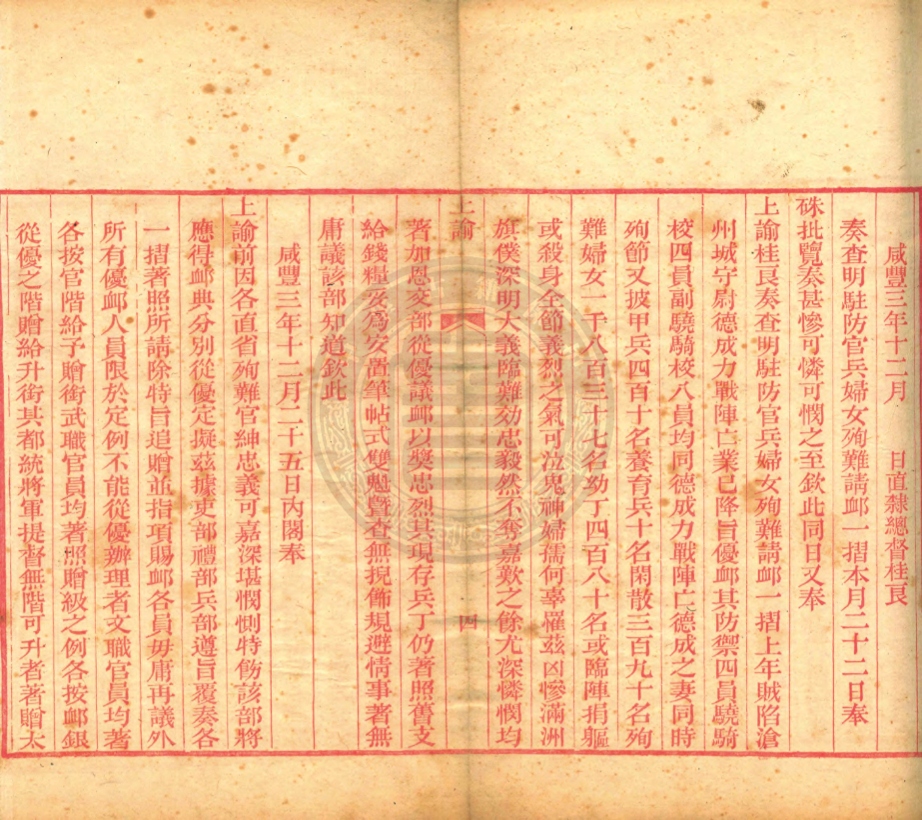 咸豐三年十二月　日直隸總督桂良
奏查明駐防官兵婦女殉難請卹一摺本月二十二日奉
硃批覽奏甚慘可憐可憫之至欽此同日又奉
上諭桂良奏查明駐防官兵婦女殉難請卹一摺上年賊陷滄
州城守尉德成力戰陣亡業已降旨優卹其防禦四員驍騎
校四員副驍騎校八員均同德成力戰陣亡德成之妻同時
殉節又披甲兵四百十名養育兵十名閑散三百九十名殉
難婦女一千八百三十七名幼丁四百八十名或臨陣捐軀
或殺身全節義烈之氣可泣鬼神婦孺何辜罹茲凶慘滿洲
旗僕深明大義臨難効忠毅然不奪嘉歎之餘尤深憐憫均
上諭
四
著加恩交部從優議卹以獎忠烈其現存兵丁仍著照舊支
給錢糧妥爲安置筆帖式雙魁暨查無捏飾規避情事著無
庸議該部知道欽此
咸豐三年十二月二十五日內閣奉
上諭前因各直省殉難官紳忠義可嘉深堪憫惻特飭該部將
應得卹典分別從優定擬茲據吏部禮部兵部遵旨覆奏各
一摺著照所請除特旨追贈並指項賜卹各員毋庸再議外
所有優卹人員限於定例不能從優辦理者文職官員均著
各按官階給予贈銜武職官員均著照贈級之例各按卹銀
從優之階贈給升銜其都統將軍提督無階可升者著贈太